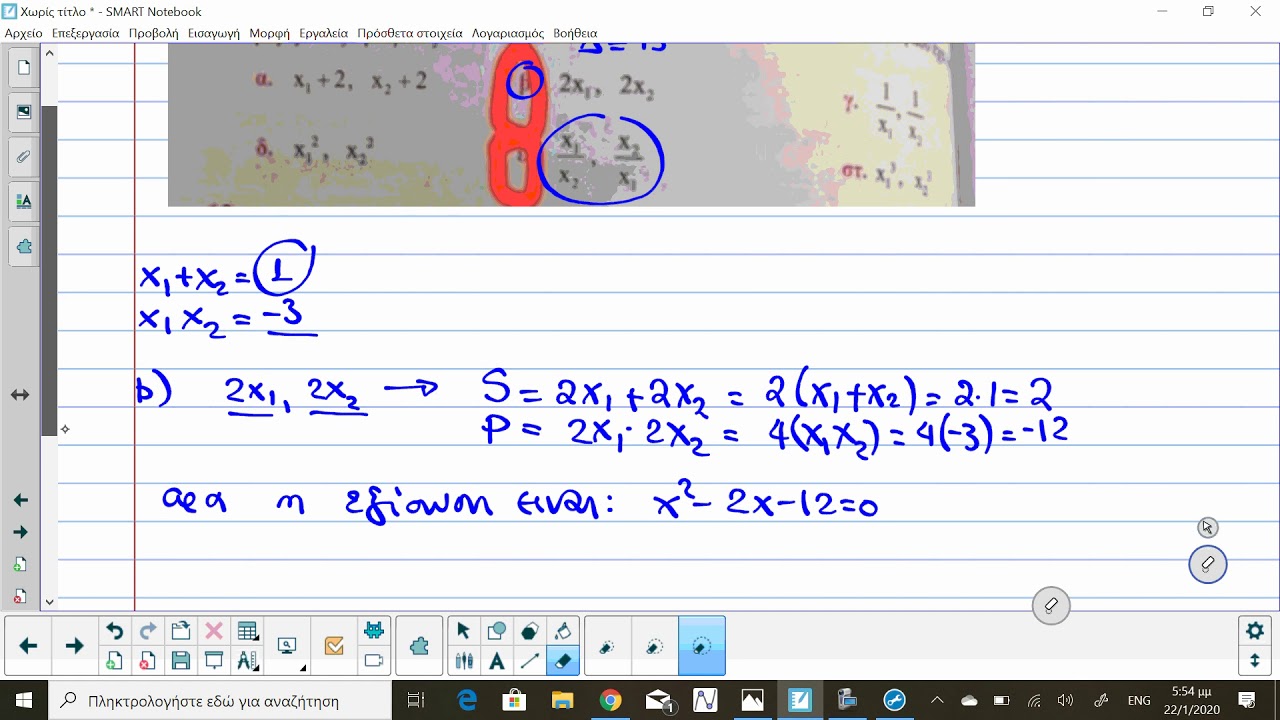 Χωρίς τίτλο * - SMART Notebook
Αρχείο Επεξεργασία Προβολή Εισαγωγή Μορφή Εργαλεία Πρόσθετα στοιχεία Λογαριασμός Βοήθεια
α. x₁ + 2, x₂ + 2
β 2x₁, 2x₂
γ. 1/x₁, 1/x₂
δ. x₁², x₂²
x₁/x₂, x₂/x₁
στ. x₁³, x₂³
x₁+x₂ = 1
x₁ x₂ = -3
b) 2x₁, 2x₂ → S = 2x₁ + 2x₂ = 2(x₁+x₂) = 2·1 = 2
P = 2x₁ · 2x₂ = 4(x₁x₂) = 4(-3) = -12
αρα η εξίσωση ειναι: x² - 2x - 12 = 0
Πληκτρολογήστε εδώ για αναζήτηση
1
ENG
5:54 μμ
22/1/2020